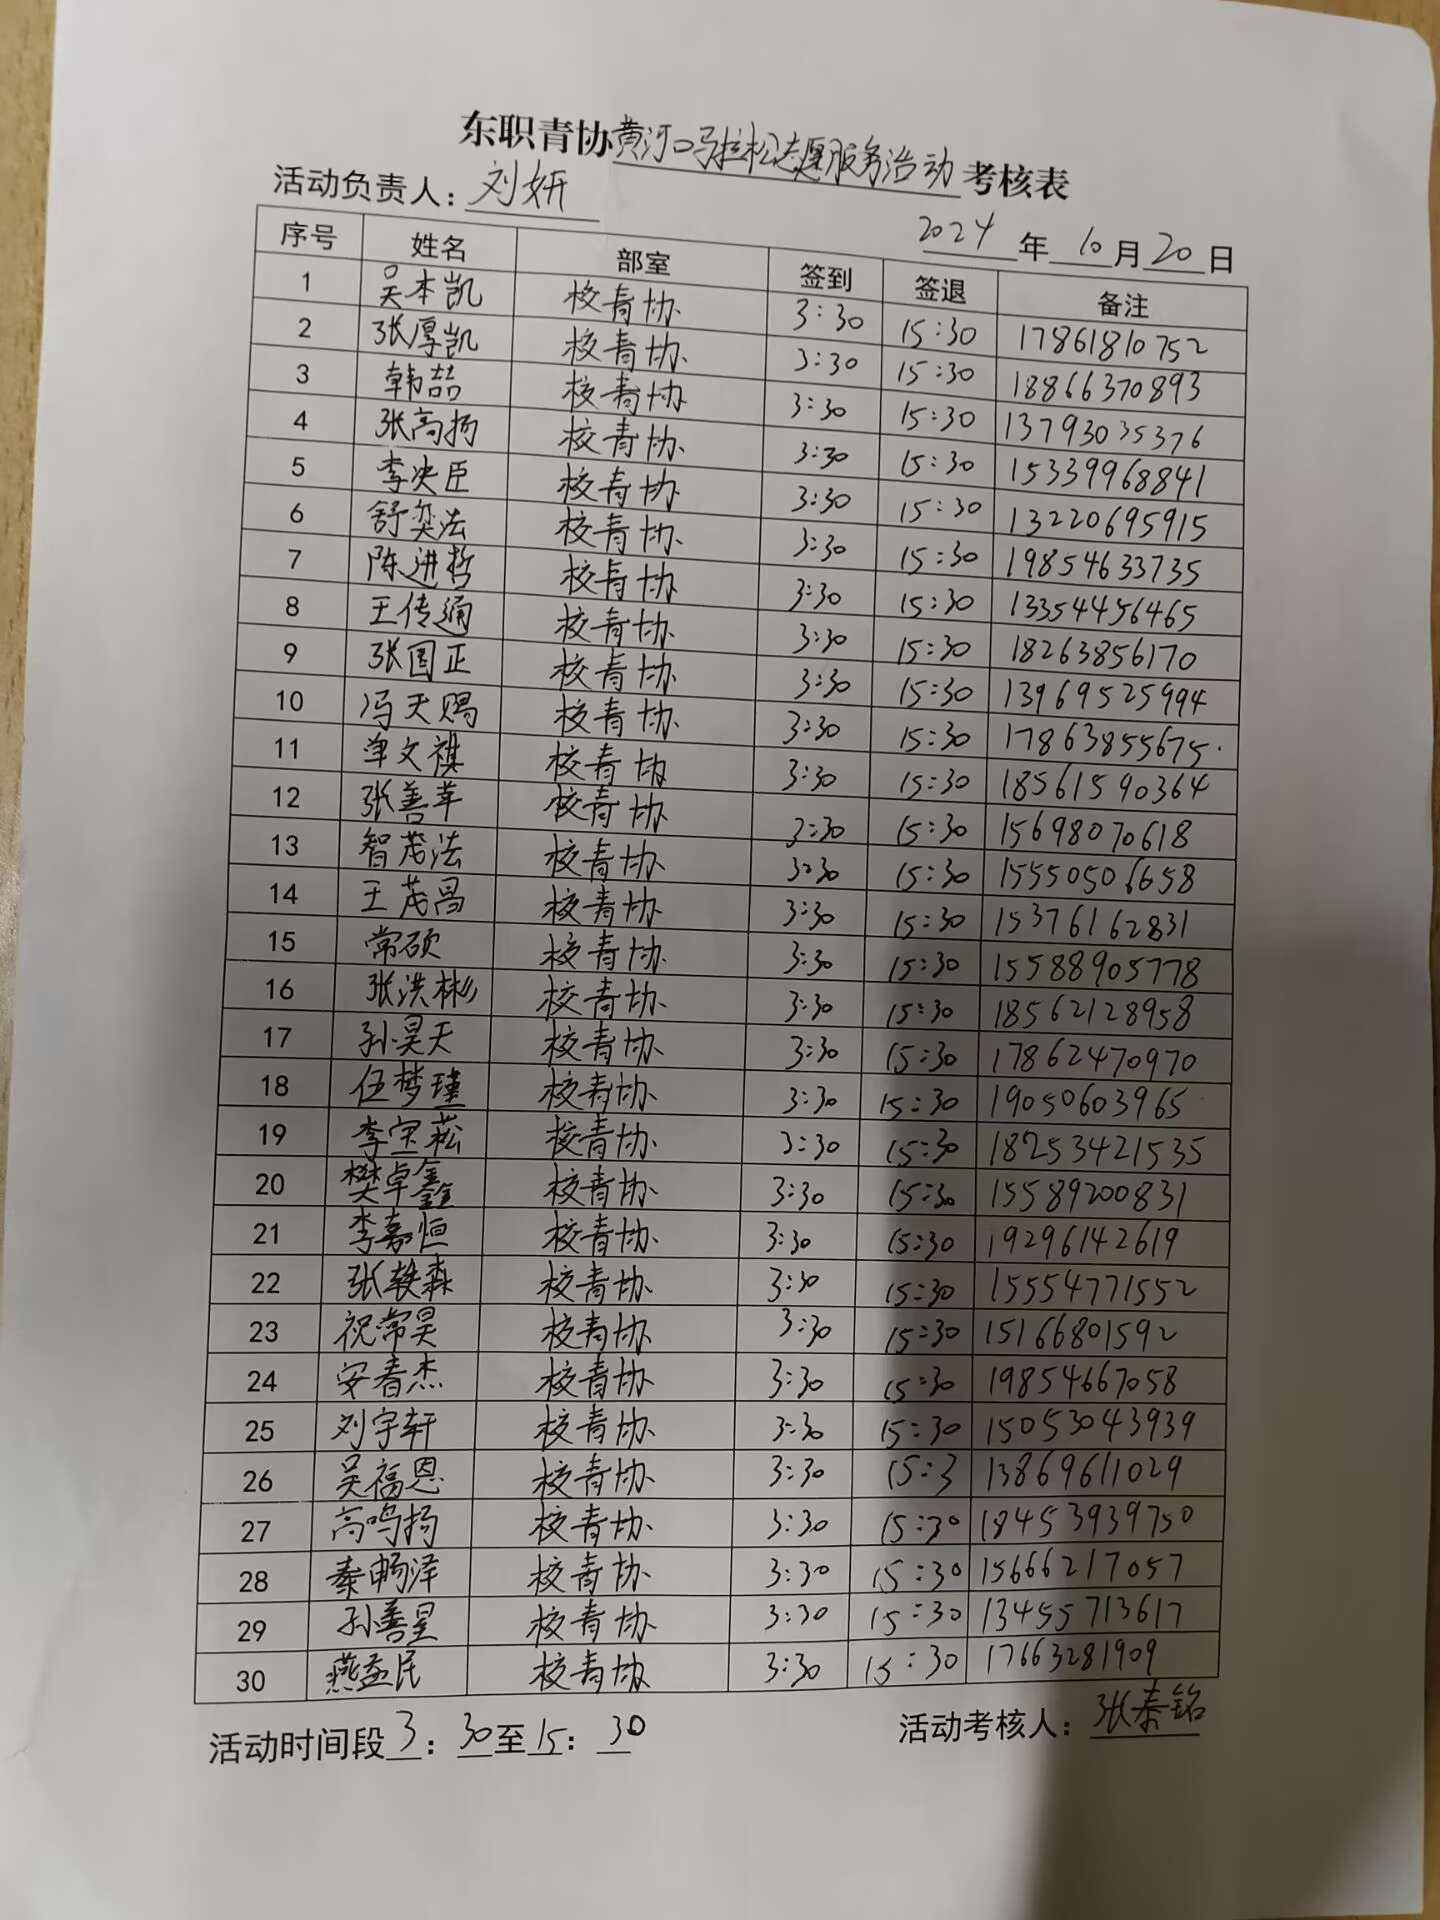 东职青协黄河口马拉松志愿服务活动考核表
活动负责人：刘妍
2024年10月20日
序号 姓名 部室 签到 签退 备注
1 吴本凯 校青协 3:30 15:30 17861810752
2 张厚凯 校青协 3:30 15:30 18866370893
3 韩喆 校青协 3:30 15:30 13793035376
4 张高扬 校青协 3:30 15:30 15339968841
5 李决臣 校青协 3:30 15:30 13220695915
6 舒奕法 校青协 3:30 15:30 19854633735
7 陈进哲 校青协 3:30 15:30 13354456465
8 王传通 校青协 3:30 15:30 18263856170
9 张国正 校青协 3:30 15:30 13969525994
10 冯天赐 校青协 3:30 15:30 17863855675
11 单文祺 校青协 3:30 15:30 18561590364
12 张善苹 校青协 3:30 15:30 15698070618
13 智茂法 校青协 3:30 15:30 15550506658
14 王茂昌 校青协 3:30 15:30 15376162831
15 常硕 校青协 3:30 15:30 15588905778
16 张洪彬 校青协 3:30 15:30 18562128958
17 孙昊天 校青协 3:30 15:30 17862470970
18 伍梦瑾 校青协 3:30 15:30 19050603965
19 李宝菘 校青协 3:30 15:30 18253421535
20 樊卓鑫 校青协 3:30 15:30 15589200831
21 李嘉恒 校青协 3:30 15:30 19296142619
22 张轶森 校青协 3:30 15:30 15554771552
23 祝常昊 校青协 3:30 15:30 15166801592
24 安春杰 校青协 3:30 15:30 19854667058
25 刘宇轩 校青协 3:30 15:30 15053043939
26 吴福恩 校青协 3:30 15:3 13869611029
27 高鸣扬 校青协 3:30 15:30 18453939750
28 秦畅泽 校青协 3:30 15:30 15666217057
29 孙善星 校青协 3:30 15:30 13455713617
30 燕益民 校青协 3:30 15:30 17663281909
活动时间段3：30至15：30
活动考核人：张泰铭